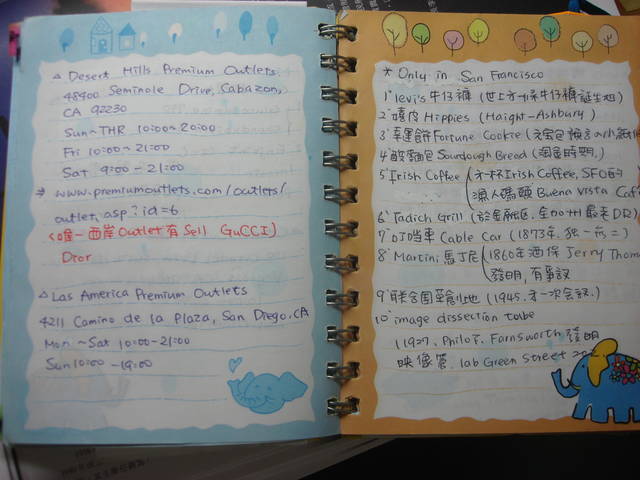 △ Desert Hills Premium Outlets
48400 Seminole Drive, Cabazon,
CA 92230
Sun~THR 10:00~20:00
Fri 10:00~21:00
Sat 9:00-21:00
www.premiumoutlets.com/outlets/
outlet.asp?id=6
唯一西岸Outlet有Sell GUCCI
Dior
△ Las America Premium Outlets
4211 Camino de la Plaza, San Diego, CA
Mon~Sat 10:00-21:00
Sun 10:00-19:00
* Only in San Francisco
1° levi's牛仔褲 (世上第一條牛仔褲誕生地)
2° 嬉皮Hippies (Haight-Ashbury)
3° 幸運餅Fortune Cookie (元宝包預言的小紙
4° 酸麵包Sourdough Bread (淘金時期.)
5° Irish Coffee 第一杯Irish Coffee, SFO的
漁人碼頭 Buena Vista Caf
6° Tadich Grill (於金融區, 全加州最老DR)
7° 叮噹車 Cable Car (1873年, 独一無二)
8° Martini 馬丁尼 1860年酒保 Jerry Thom
發明, 有爭議
9° 聯合國草創地 (1945, 第一次会議.)
10° image dissection tube
1927, Philo T. Farnsworth 發明
映像管. lab Green Street 20